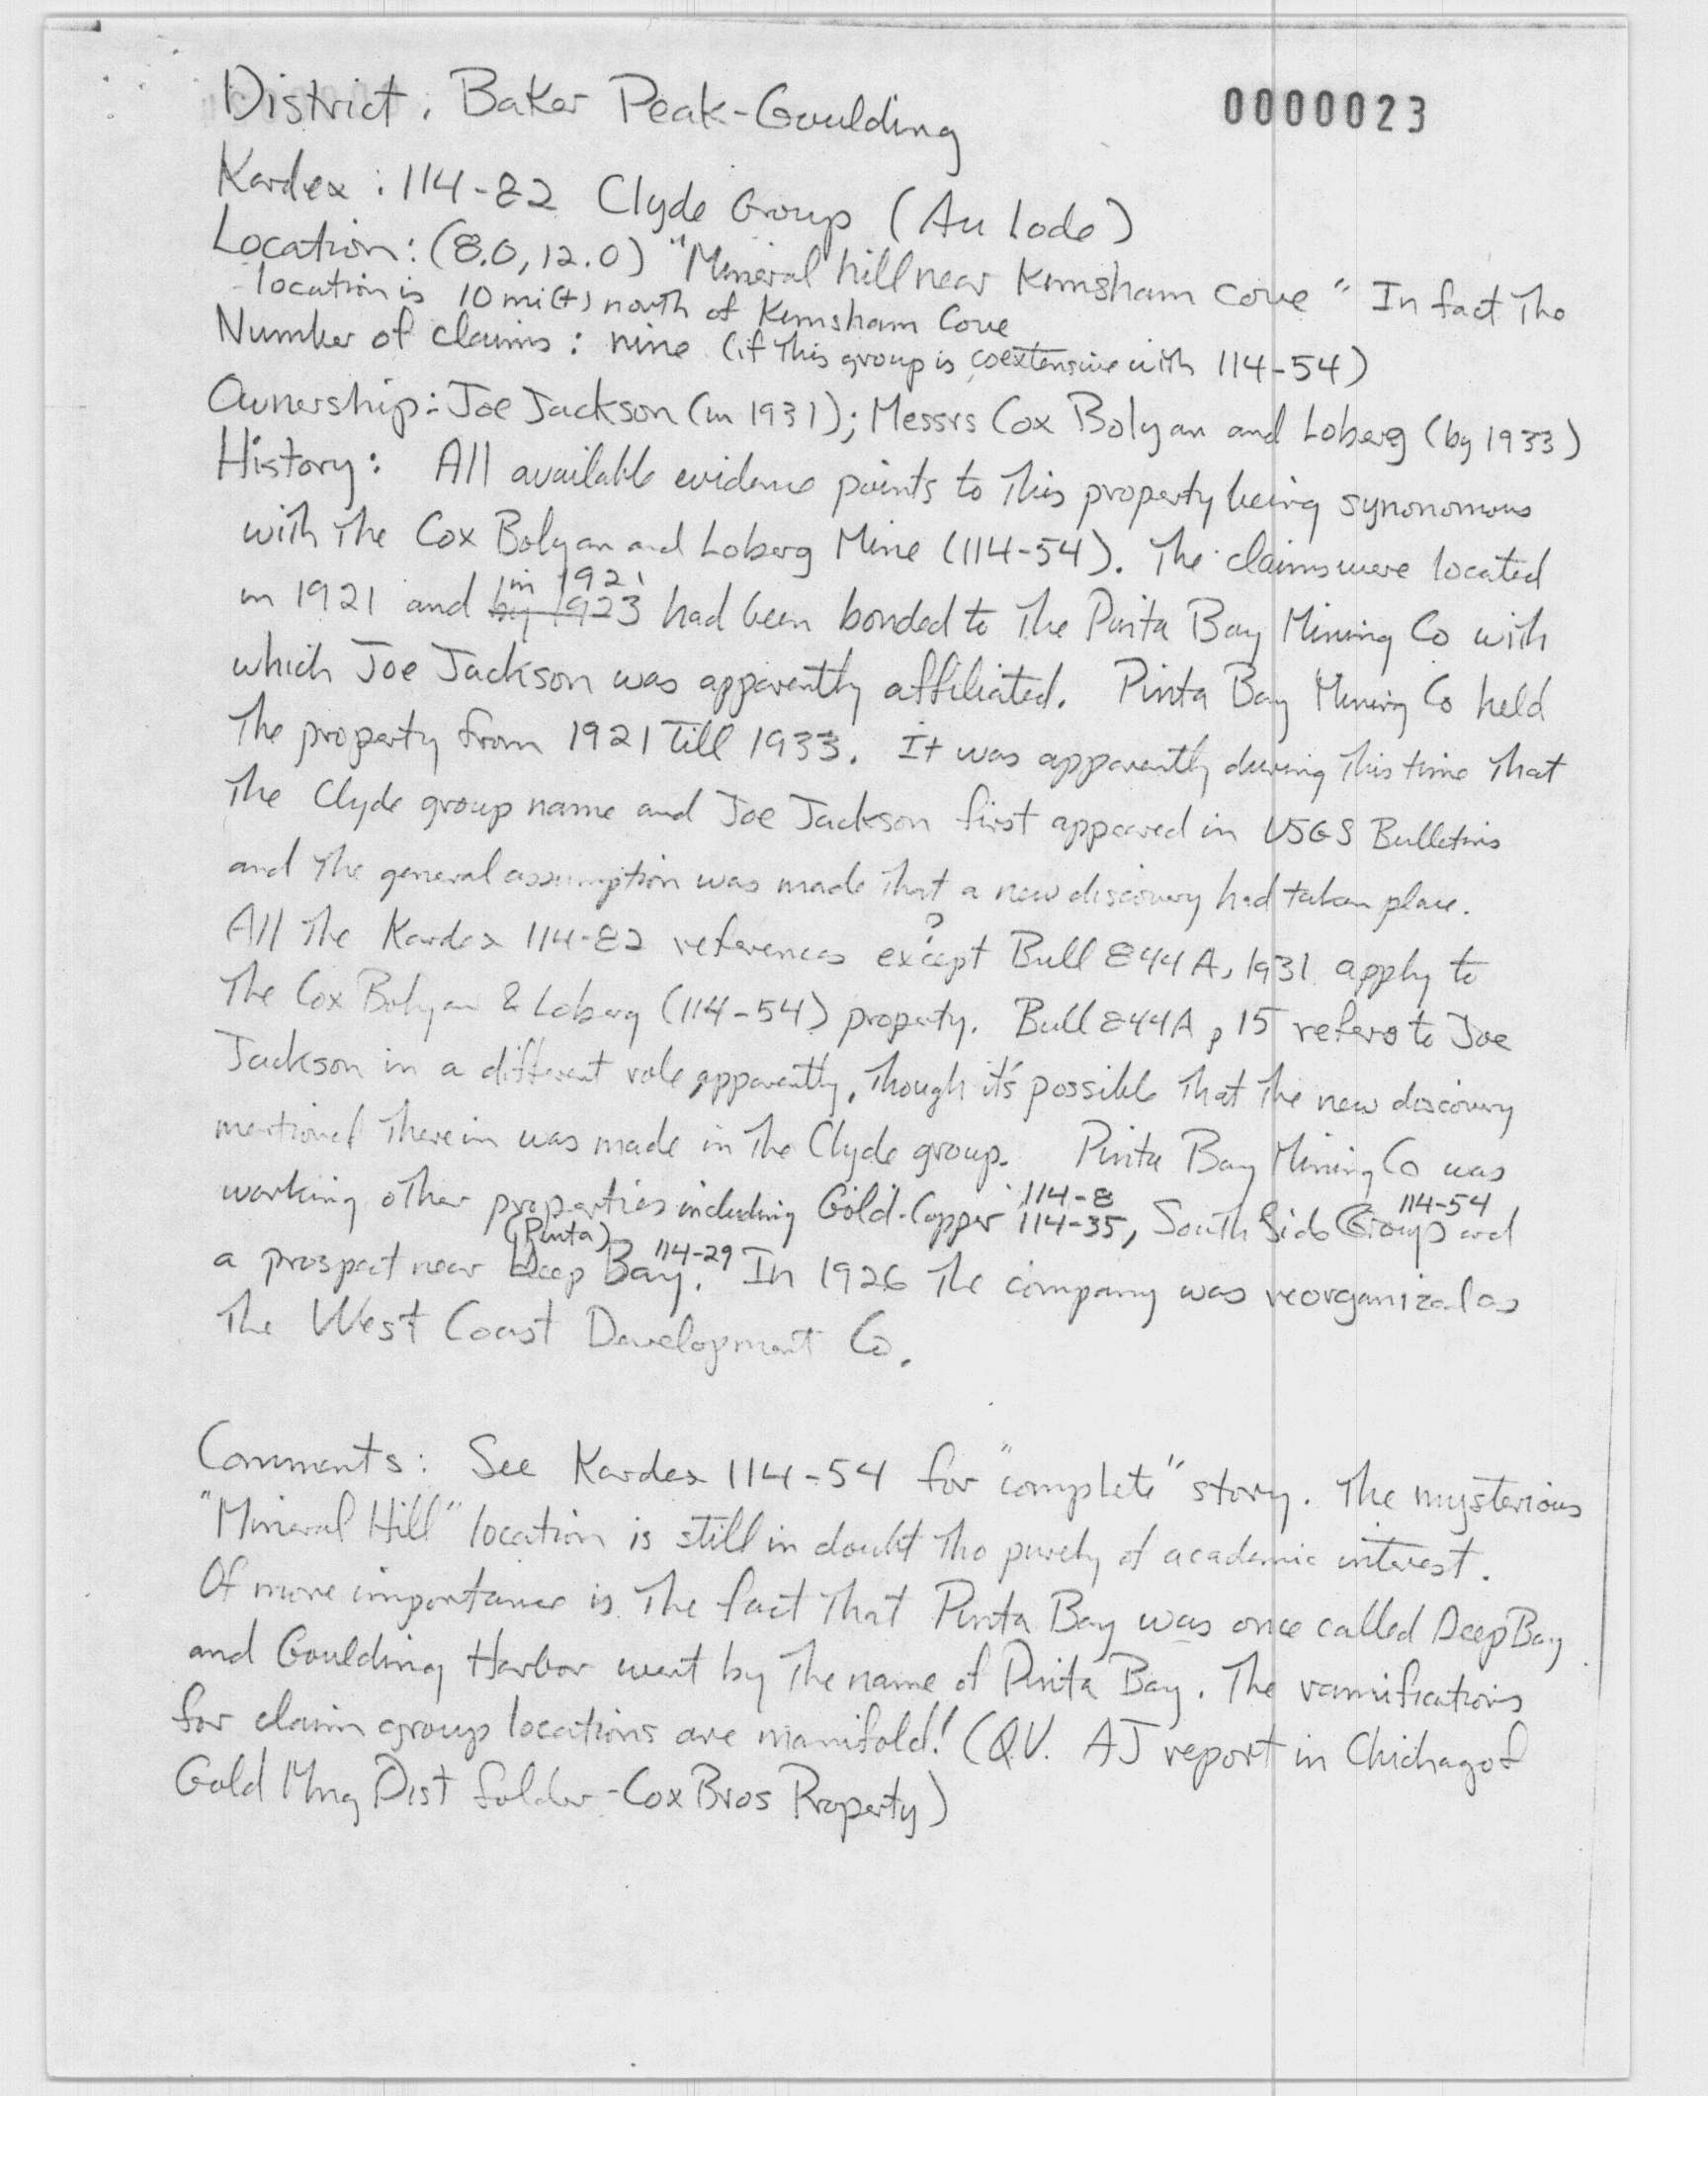 District. Baker Peak-Goulding
0000023
Kardex: 114-82 Clyde Group (Au lode)
Location: (8.0, 12.0) "Mineral hill near Kimsham cove" In fact the
location is 10 mi(±) north of Kimsham Cove
Number of claims: nine (if this group is coextensive with 114-54)
Ownership: Joe Jackson (in 1931); Messrs Cox Bolyan and Loberg (by 1933)
History: All available evidence points to this property being synonomous
with the Cox Bolyan and Loberg Mine (114-54). The claims were located
in 1921
in 1921 and by 1923 had been bonded to the Pinta Bay Mining Co with
which Joe Jackson was apparently affiliated. Pinta Bay Mining Co held
the property from 1921 till 1933. It was apparently during this time that
the Clyde group name and Joe Jackson first appeared in USGS Bulletins
and the general assumption was made that a new discovery had taken place.
?
All the Kardex 114-82 references except Bull 844A, 1931 apply to
the Cox Bolyan & Loberg (114-54) property. Bull 844A p 15 refers to Joe
Jackson in a different role apparently, though it's possible that the new discovery
mentioned therein was made in the Clyde group. Pinta Bay Mining Co was
114-8 114-54
working other properties including Gold-Copper 114-35, South Side Group and
(Pinta) 114-29
a prospect near Deep Bay. In 1926 the company was reorganized as
the West Coast Development Co.
Comments: See Kardex 114-54 for "complete" story. The mysterious
"Mineral Hill" location is still in doubt tho purely of academic interest.
Of more importance is the fact that Pinta Bay was once called Deep Bay
and Goulding Harbor went by the name of Pinta Bay. The ramifications
for claim group locations are manifold! (Q.V. AJ report in Chichagof
Gold Mng Dist folder - Cox Bros Property)